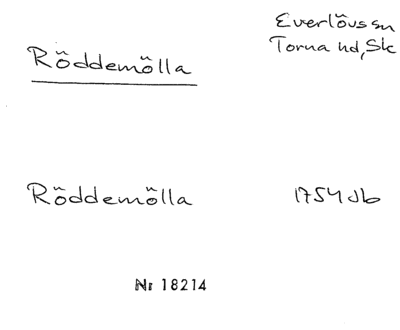 Röddemölla
Everlöus sn
Torna hd, Sk
Röddemölla
1754 Jb
Nr 18214